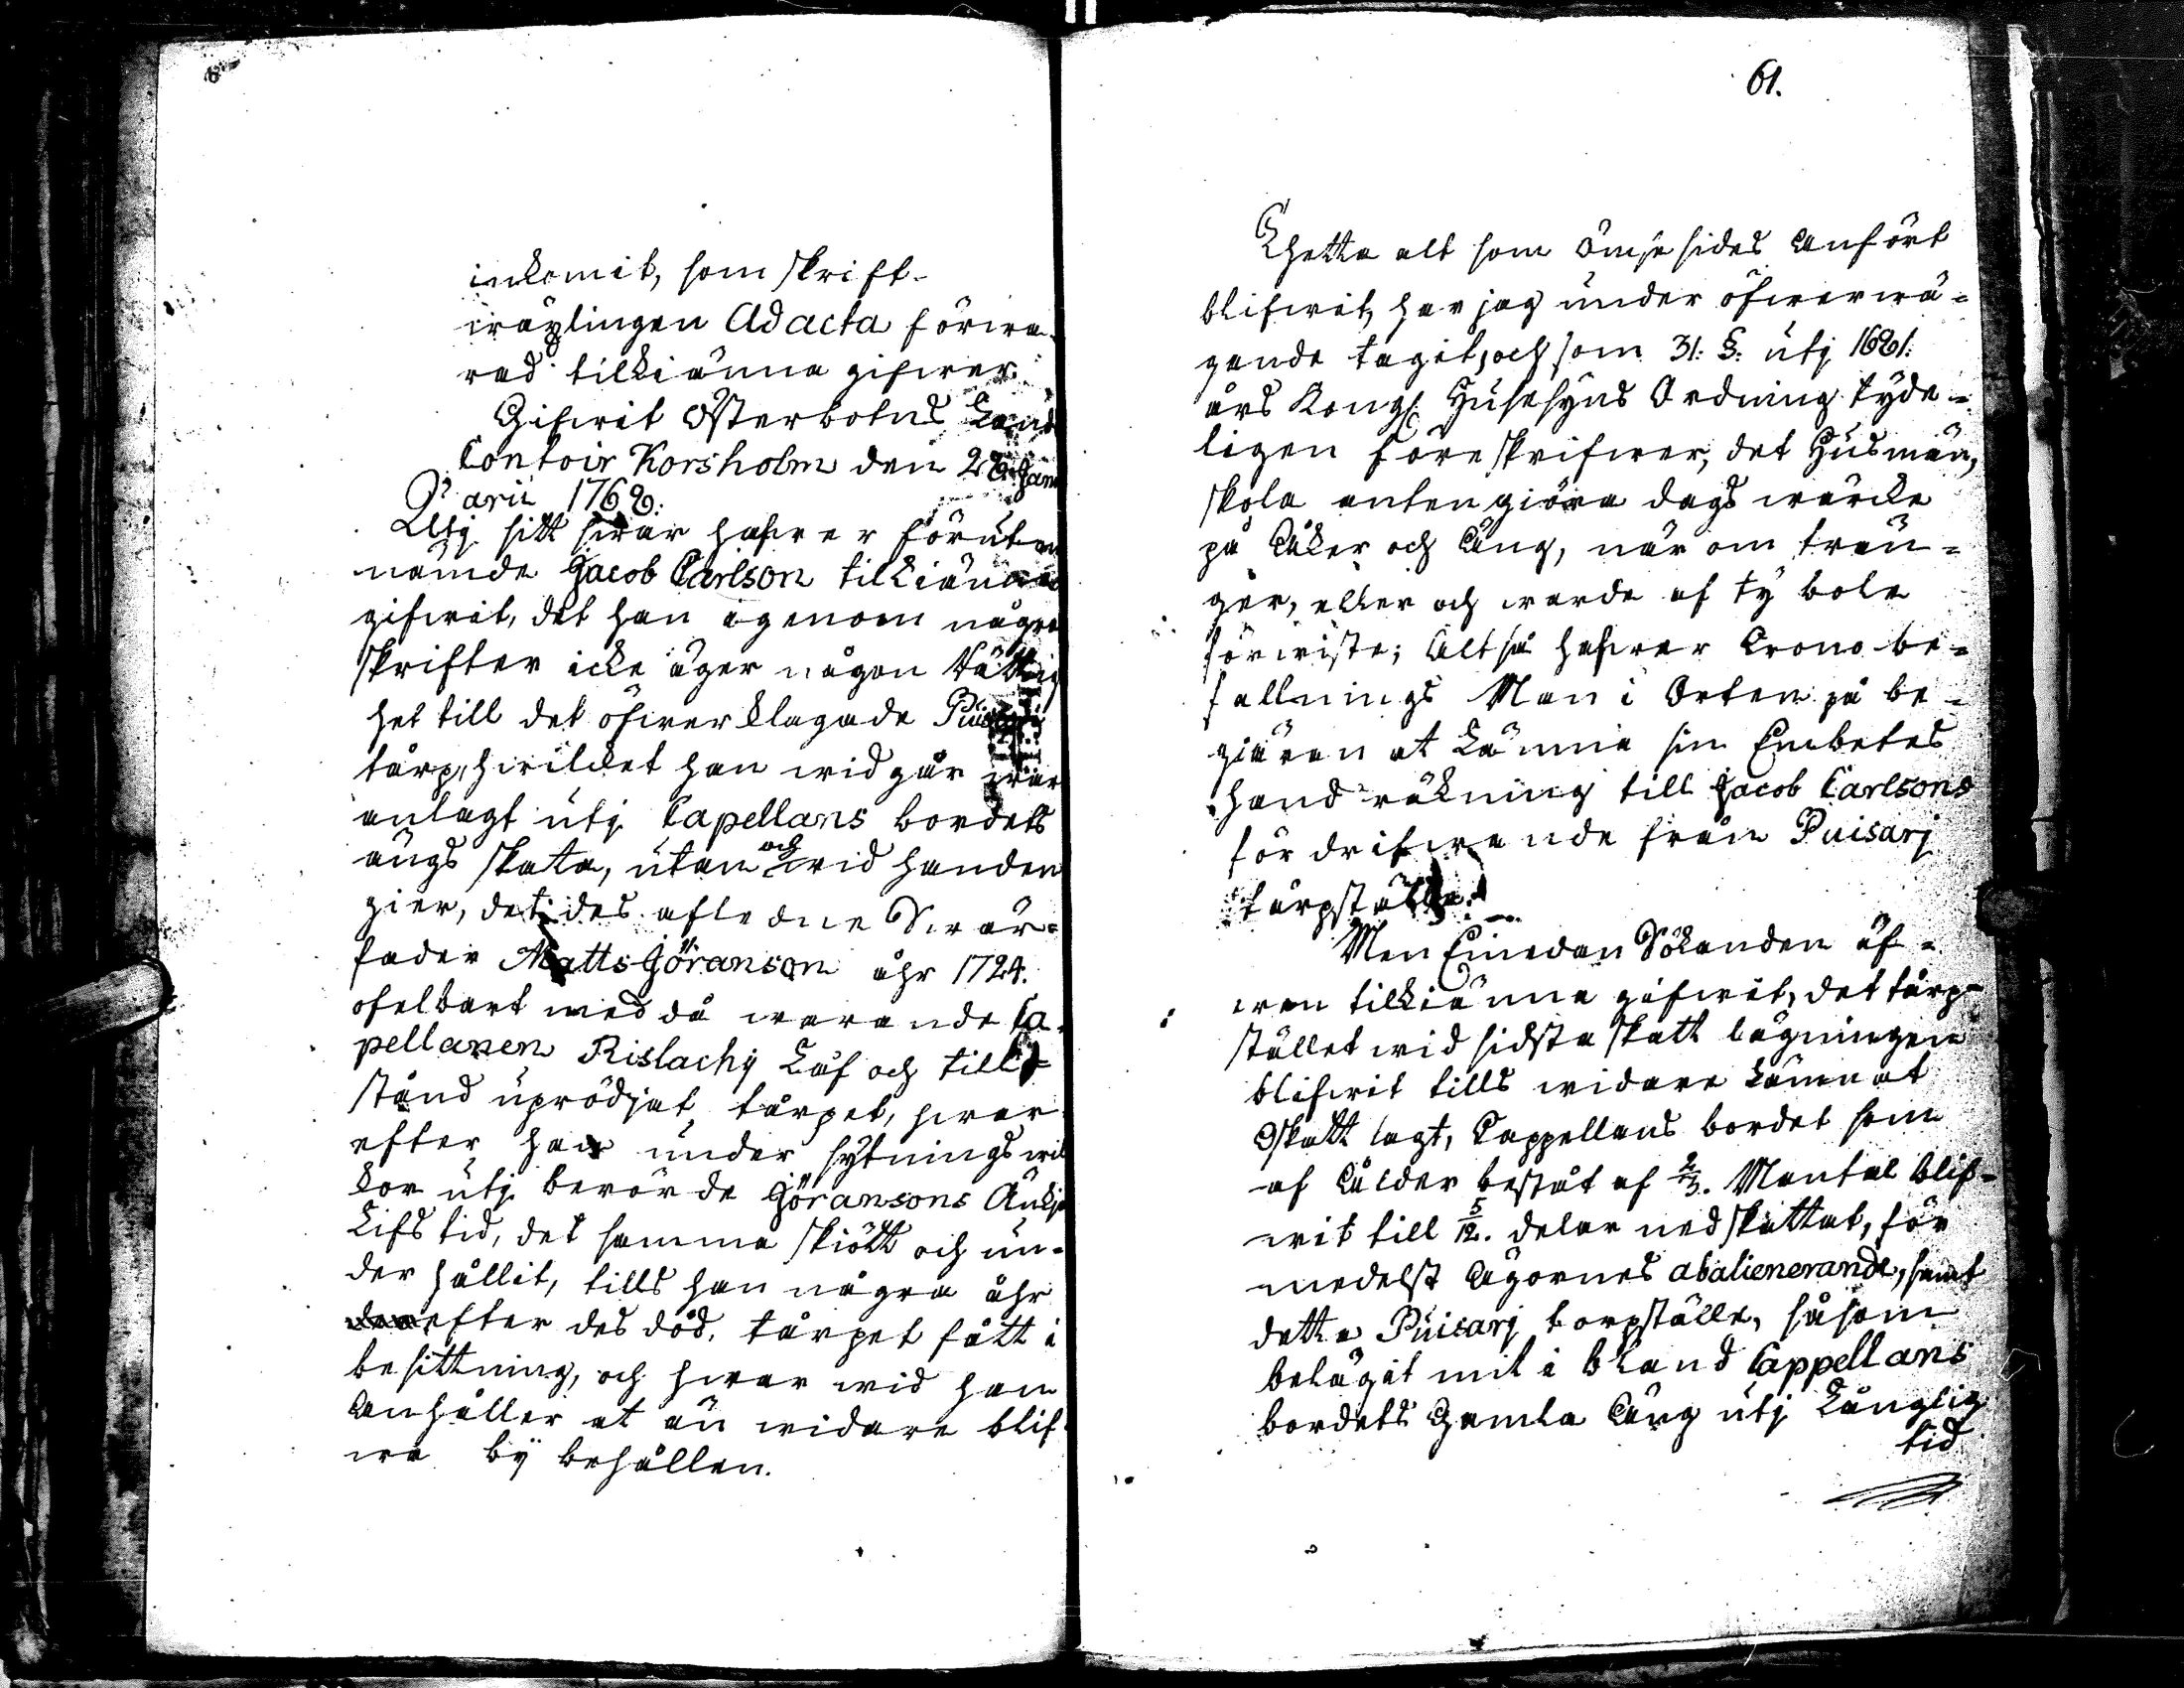 inkomit, som skrift-
wäxlingen Ad acta förwa-
rad tilkiänna gifwer.
Gifwit Österbotns Land
Contoir Korsholm den 28. Janu
arii 1768.
Utj sitt swar hafwer förute
nämde Jacob Carlson tilkiänna
gifwit, det han igenom några
skrifter icke äger någon rättig
het till det öfwerklagade Puisari
tårp, hwilcket han widgår wara
anlagt utj Capellans bordets
ängs skata, utan och wid handen
gier, det des afledne Swär-
fader Matts Göranson åhr 1724.
ofelbart med då warande Ca-
pellanen Rislachij Låf och till
stånd uprödjat tårpet, hwar
efter han under sytnings wil
kor utj berörde Göransons Änkjo
Lifs tid, det samma skiött och un-
der hållit, tills han några åhr
efter des död, tårpet fått i
besittning, och hwar wid han
Anhåller at än widare blif
wa by behållen.
61.
Thetta alt som ömse sides Anfört
blifwit, har jag under öfwerwä-
gande tagit, och som 31. §. utj 1681.
års Kongl. Husesyns Ordning tyde-
ligen föreskrifwer, det Husmän,
skola anten giöra dags wärcke
på Åker och Äng, när om trän-
ger, eller och warda af ty bole
förwiste; Altså hafwer Crono be-
fallnings Man i Orten på be-
giäran at Lämna sin Embetes
handräkning till Jacob Carlsons
fördrifwande från Puisarj
tårpställe.
Men Emedan Sökanden äf-
wen tilkiänna gifwit, det tårp-
stället wid sidsta skatt lägningen
blifwit tills widare Lämnat
Oskatt lagt, Cappellans bordet som
af Ålder bestått af 2/3. Mantal blif-
wit till 5/12. delar nedskattat, för
medelst Ägornes abalienerande, samt
detta Puisarj torpställe, såsom
belägit mit i bland Cappellans
bordets Gamla Äng utj Långlig
tid